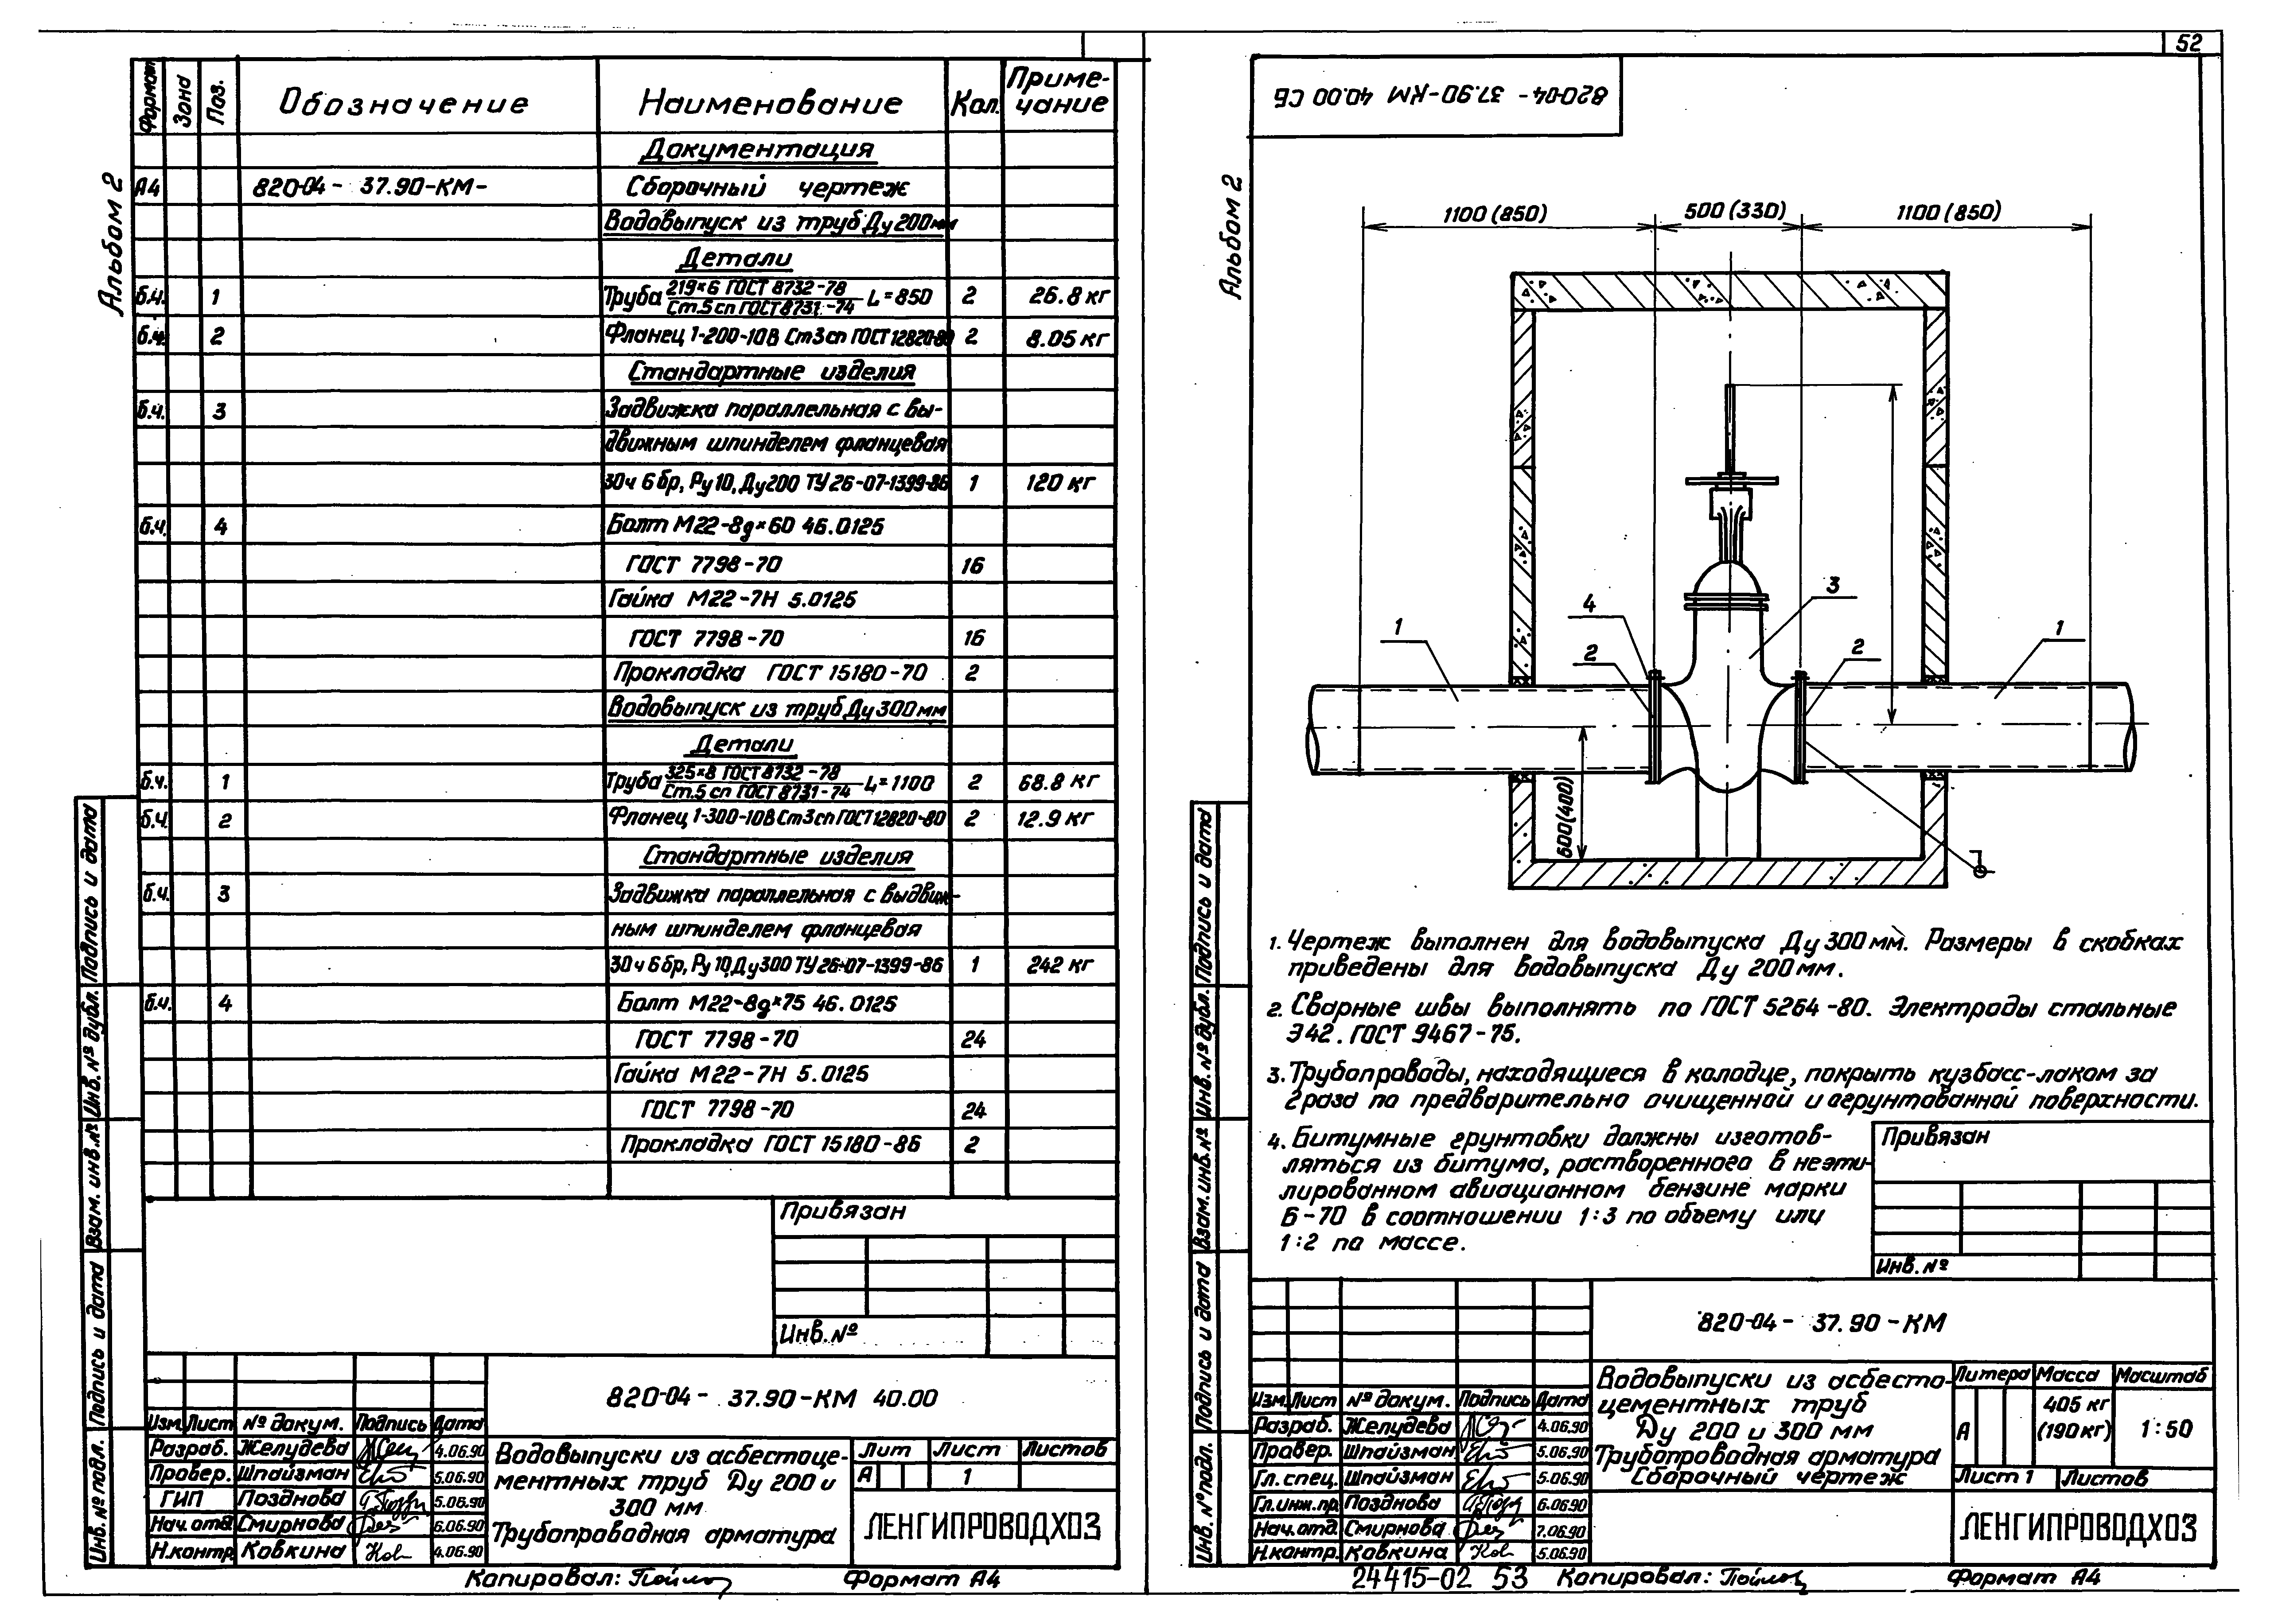 Альбом 2
Формат Зона Поз. Обозначение Наименование Кол. Приме-
чание
Документация
А4 820-04- 37.90-КМ- Сборочный чертеж
Водовыпуск из труб Ду 200мм
Детали
б.ч. 1 Труба 219×6 ГОСТ 8732-78 L=850 2 26.8 кг
Ст.5 сп ГОСТ 8731-74
б.ч. 2 Фланец 1-200-10В Ст3сп ГОСТ 12820-80 2 8.05 кг
Стандартные изделия
б.ч. 3 Задвижка параллельная с вы-
движным шпинделем фланцевая
30ч 6 бр, Ру 10, Ду200 ТУ 26-07-1399-86 1 120 кг
б.ч. 4 Болт М22-8g×60 46.0125
ГОСТ 7798-70 16
Гайка М22-7Н 5.0125
ГОСТ 7798-70 16
Прокладка ГОСТ 15180-70 2
Водовыпуск из труб Ду 300мм
Детали
б.ч. 1 Труба 325×8 ГОСТ 8732-78 L=1100 2 68.8 кг
Ст.5 сп ГОСТ 8731-74
б.ч. 2 Фланец 1-300-10В Ст3сп ГОСТ 12820-80 2 12.9 кг
Стандартные изделия
б.ч. 3 Задвижка параллельная с выдвиж-
ным шпинделем фланцевая
30ч 6бр, Ру 10, Ду300 ТУ 26-07-1399-86 1 242 кг
б.ч. 4 Болт М22-8g×75 46.0125
ГОСТ 7798-70 24
Гайка М22-7Н 5.0125
ГОСТ 7798-70 24
Прокладка ГОСТ 15180-86 2
Привязан
Инв.№
Инв.№ подл. Подпись и дата Взам. инв.№ Инв.№ дубл. Подпись и дата
820-04- 37.90-КМ 40.00
Изм. Лист № докум. Подпись Дата
Разраб. Желудева 4.06.90
Провер. Шпайзман 5.06.90
ГИП Позднова 5.06.90
Нач.отд. Смирнова 6.06.90
Н.контр. Ковкина 4.06.90
Водовыпуски из асбестоце-
ментных труб Ду 200 и
300 мм
Трубопроводная арматура
Лит Лист Листов
А 1
ЛЕНГИПРОВОДХОЗ
Копировал: Формат А4
52
820-04- 37.90-КМ 40.00 СБ
Альбом 2
1100 (850) 500 (330) 1100 (850)
3
4
1 2 2 1
600(400)
1. Чертеж выполнен для водовыпуска Ду 300мм. Размеры в скобках
приведены для водовыпуска Ду 200мм.
2. Сварные швы выполнять по ГОСТ 5264-80. Электроды стальные
Э42. ГОСТ 9467-75.
3. Трубопроводы, находящиеся в колодце, покрыть кузбасс-лаком за
2 раза по предварительно очищенной и огрунтованной поверхности.
4. Битумные грунтовки должны изготов-
ляться из битума, растворенного в неэти-
лированном авиационном бензине марки
Б-70 в соотношении 1:3 по объему или
1:2 по массе.
Привязан
Инв.№
Инв.№ подл. Подпись и дата Взам.инв.№ Инв.№ дубл. Подпись и дата
820-04- 37.90-КМ
Изм. Лист № докум. Подпись Дата
Разраб. Желудева 4.06.90
Провер. Шпайзман 5.06.90
Гл.спец. Шпайзман 5.06.90
Гл.инж.пр. Позднова 6.06.90
Нач.отд. Смирнова 7.06.90
Н.контр. Ковкина 5.06.90
Водовыпуски из асбесто-
цементных труб
Ду 200 и 300 мм
Трубопроводная арматура
Сборочный чертеж
Литера Масса Масштаб
А 405 кг
(190 кг) 1:50
Лист 1 Листов
ЛЕНГИПРОВОДХОЗ
24415-02 53 Копировал: Формат А4